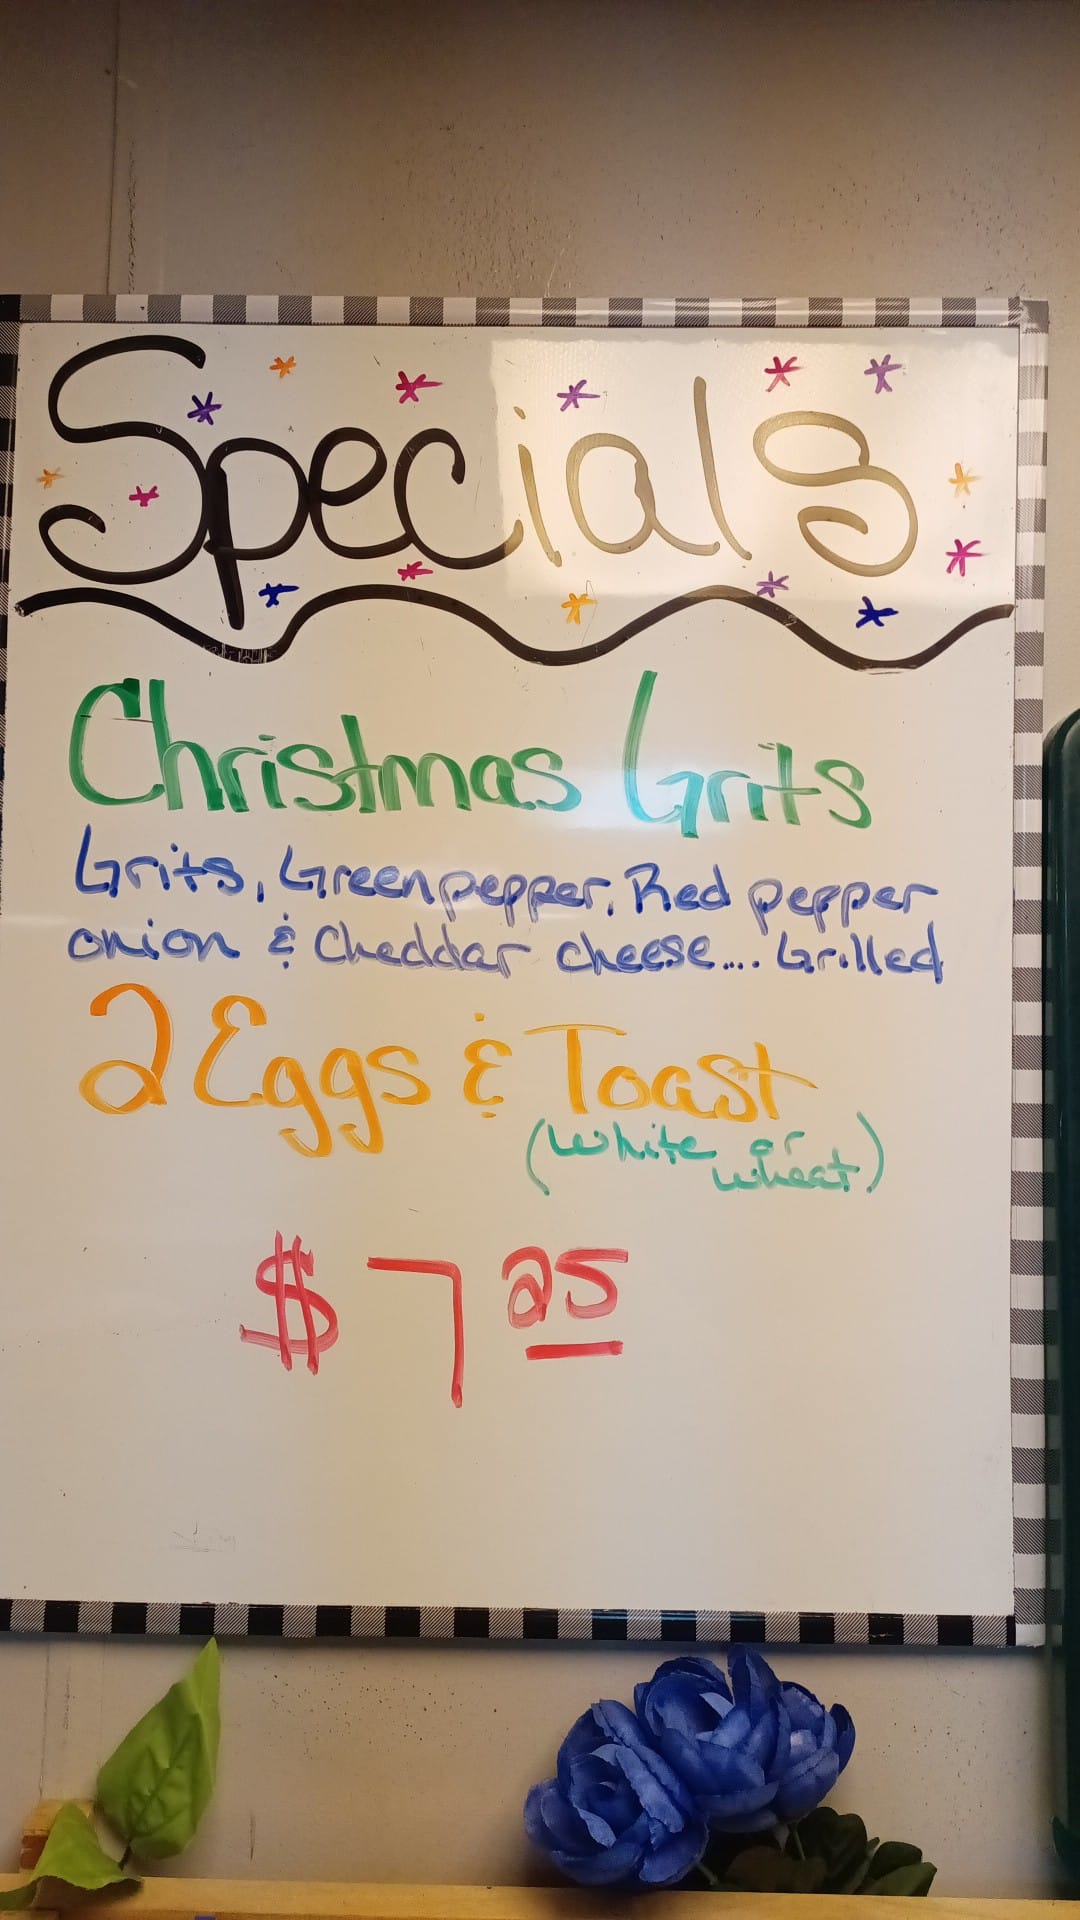 Specials
Christmas Grits
Grits, Green pepper, Red pepper
onion & Cheddar cheese.... Grilled
2 Eggs & Toast
(White or
wheat)
$ 7 25